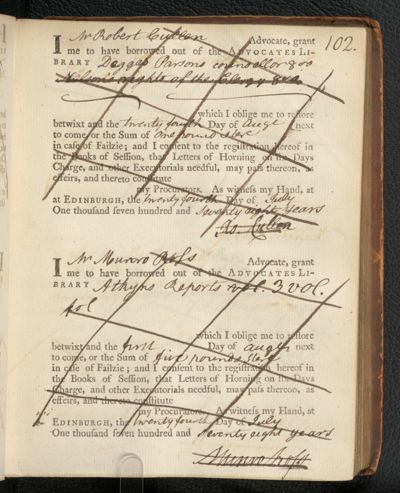 102.
I Mr Robert Cullen Advocate, grant
me to have borrowed out of the ADVOCATES LI-
BRARY Degges Parsons councellor 8vo
Nelson's rights of the Clergy 8vo
which I oblige me to restore
betwixt and the twenty fourth Day of Augt next
to come, or the Sum of one pound ster
in case of Failzie; and I consent to the registration hereof in
the Books of Session, that Letters of Horning on six Days
Charge, and other Executorials needful, may pass thereon, as
effeirs, and thereto constitute
my Procurators. As witness my Hand, at
at EDINBURGH, the twenty fourth Day of July
One thousand seven hundred and seventy eight years
Ro. Cullen
I Mr Munro Ross Advocate, grant
me to have borrowed out of the ADVOCATES LI-
BRARY Athyns Reports 3 vol.
fol
which I oblige me to restore
betwixt and the first Day of augt next
to come, or the Sum of five pounds Ster
in case of Failzie; and I consent to the registration hereof in
the Books of Session, that Letters of Horning on six Days
Charge, and other Executorials needful, may pass thereon, as
effeirs, and thereto constitute
my Procurators. As witness my Hand, at
EDINBURGH, the twenty fourth Day of July
One thousand seven hundred and seventy eight years
Munro Ross